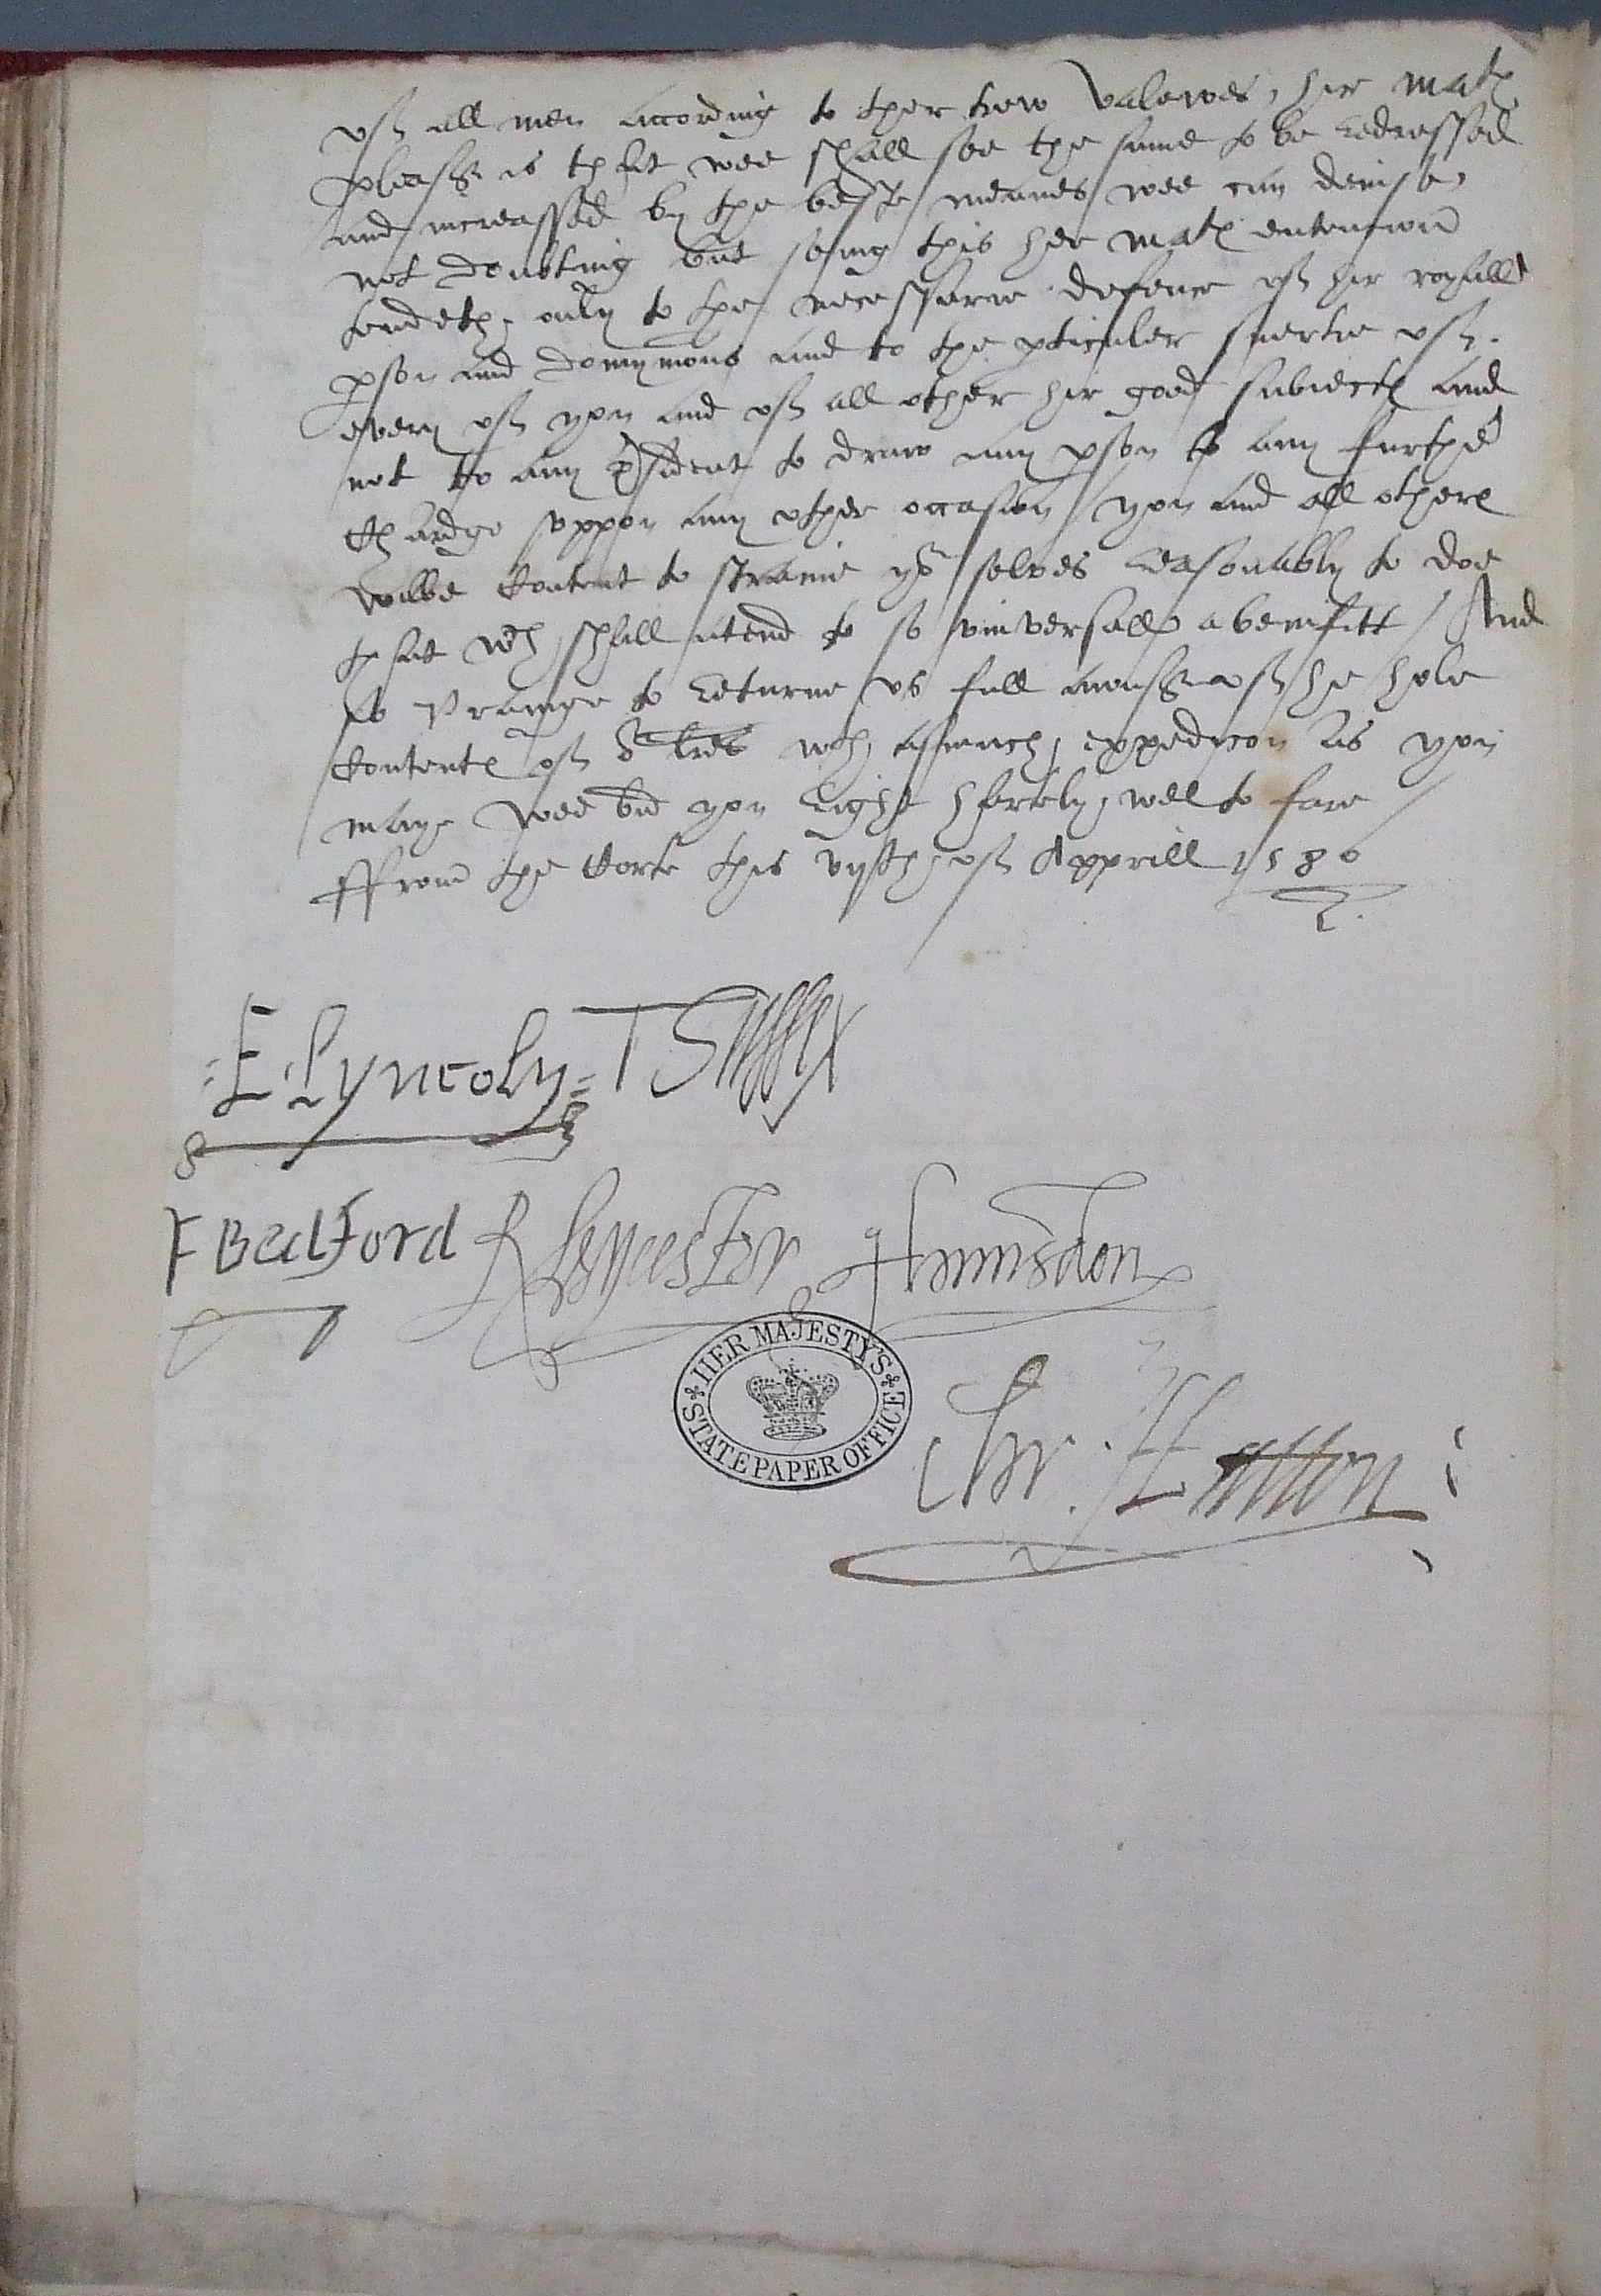 of all men according to ther trew valewes, her Matꝭ
pleasʳ is that wee shall see the same to be redressed
and increassed by the beste meanes wee can devise,
not doubting but seing this her Matꝭ entencion
tendeth, only to the necessarie defence of her royall
ꝑson and domynions and to the ꝑticuler suertie of
every of you and of all other her good subiectꝭ and
not to any to draw any ꝑson to any further
chardge uppon any other occasion / you and all otherꝭ
wilbe content to straine yoʳ selves reasonably to doe
that wᶜʰ shall tend to so universall a benifitt / And
so to returne us full answʳ of the hole
contentꝭ of oʳ lres wᵗʰ asmuch expedicon as you
maye wee bid you right hartely, well to fare /
ffrom the Corte this vijth of Apprill 1580
E Lyncoln T Sussex
F Bedford R Leycester Hunsdon
HER MAJESTY'S STATE PAPER OFFICE
Chr. Hatton